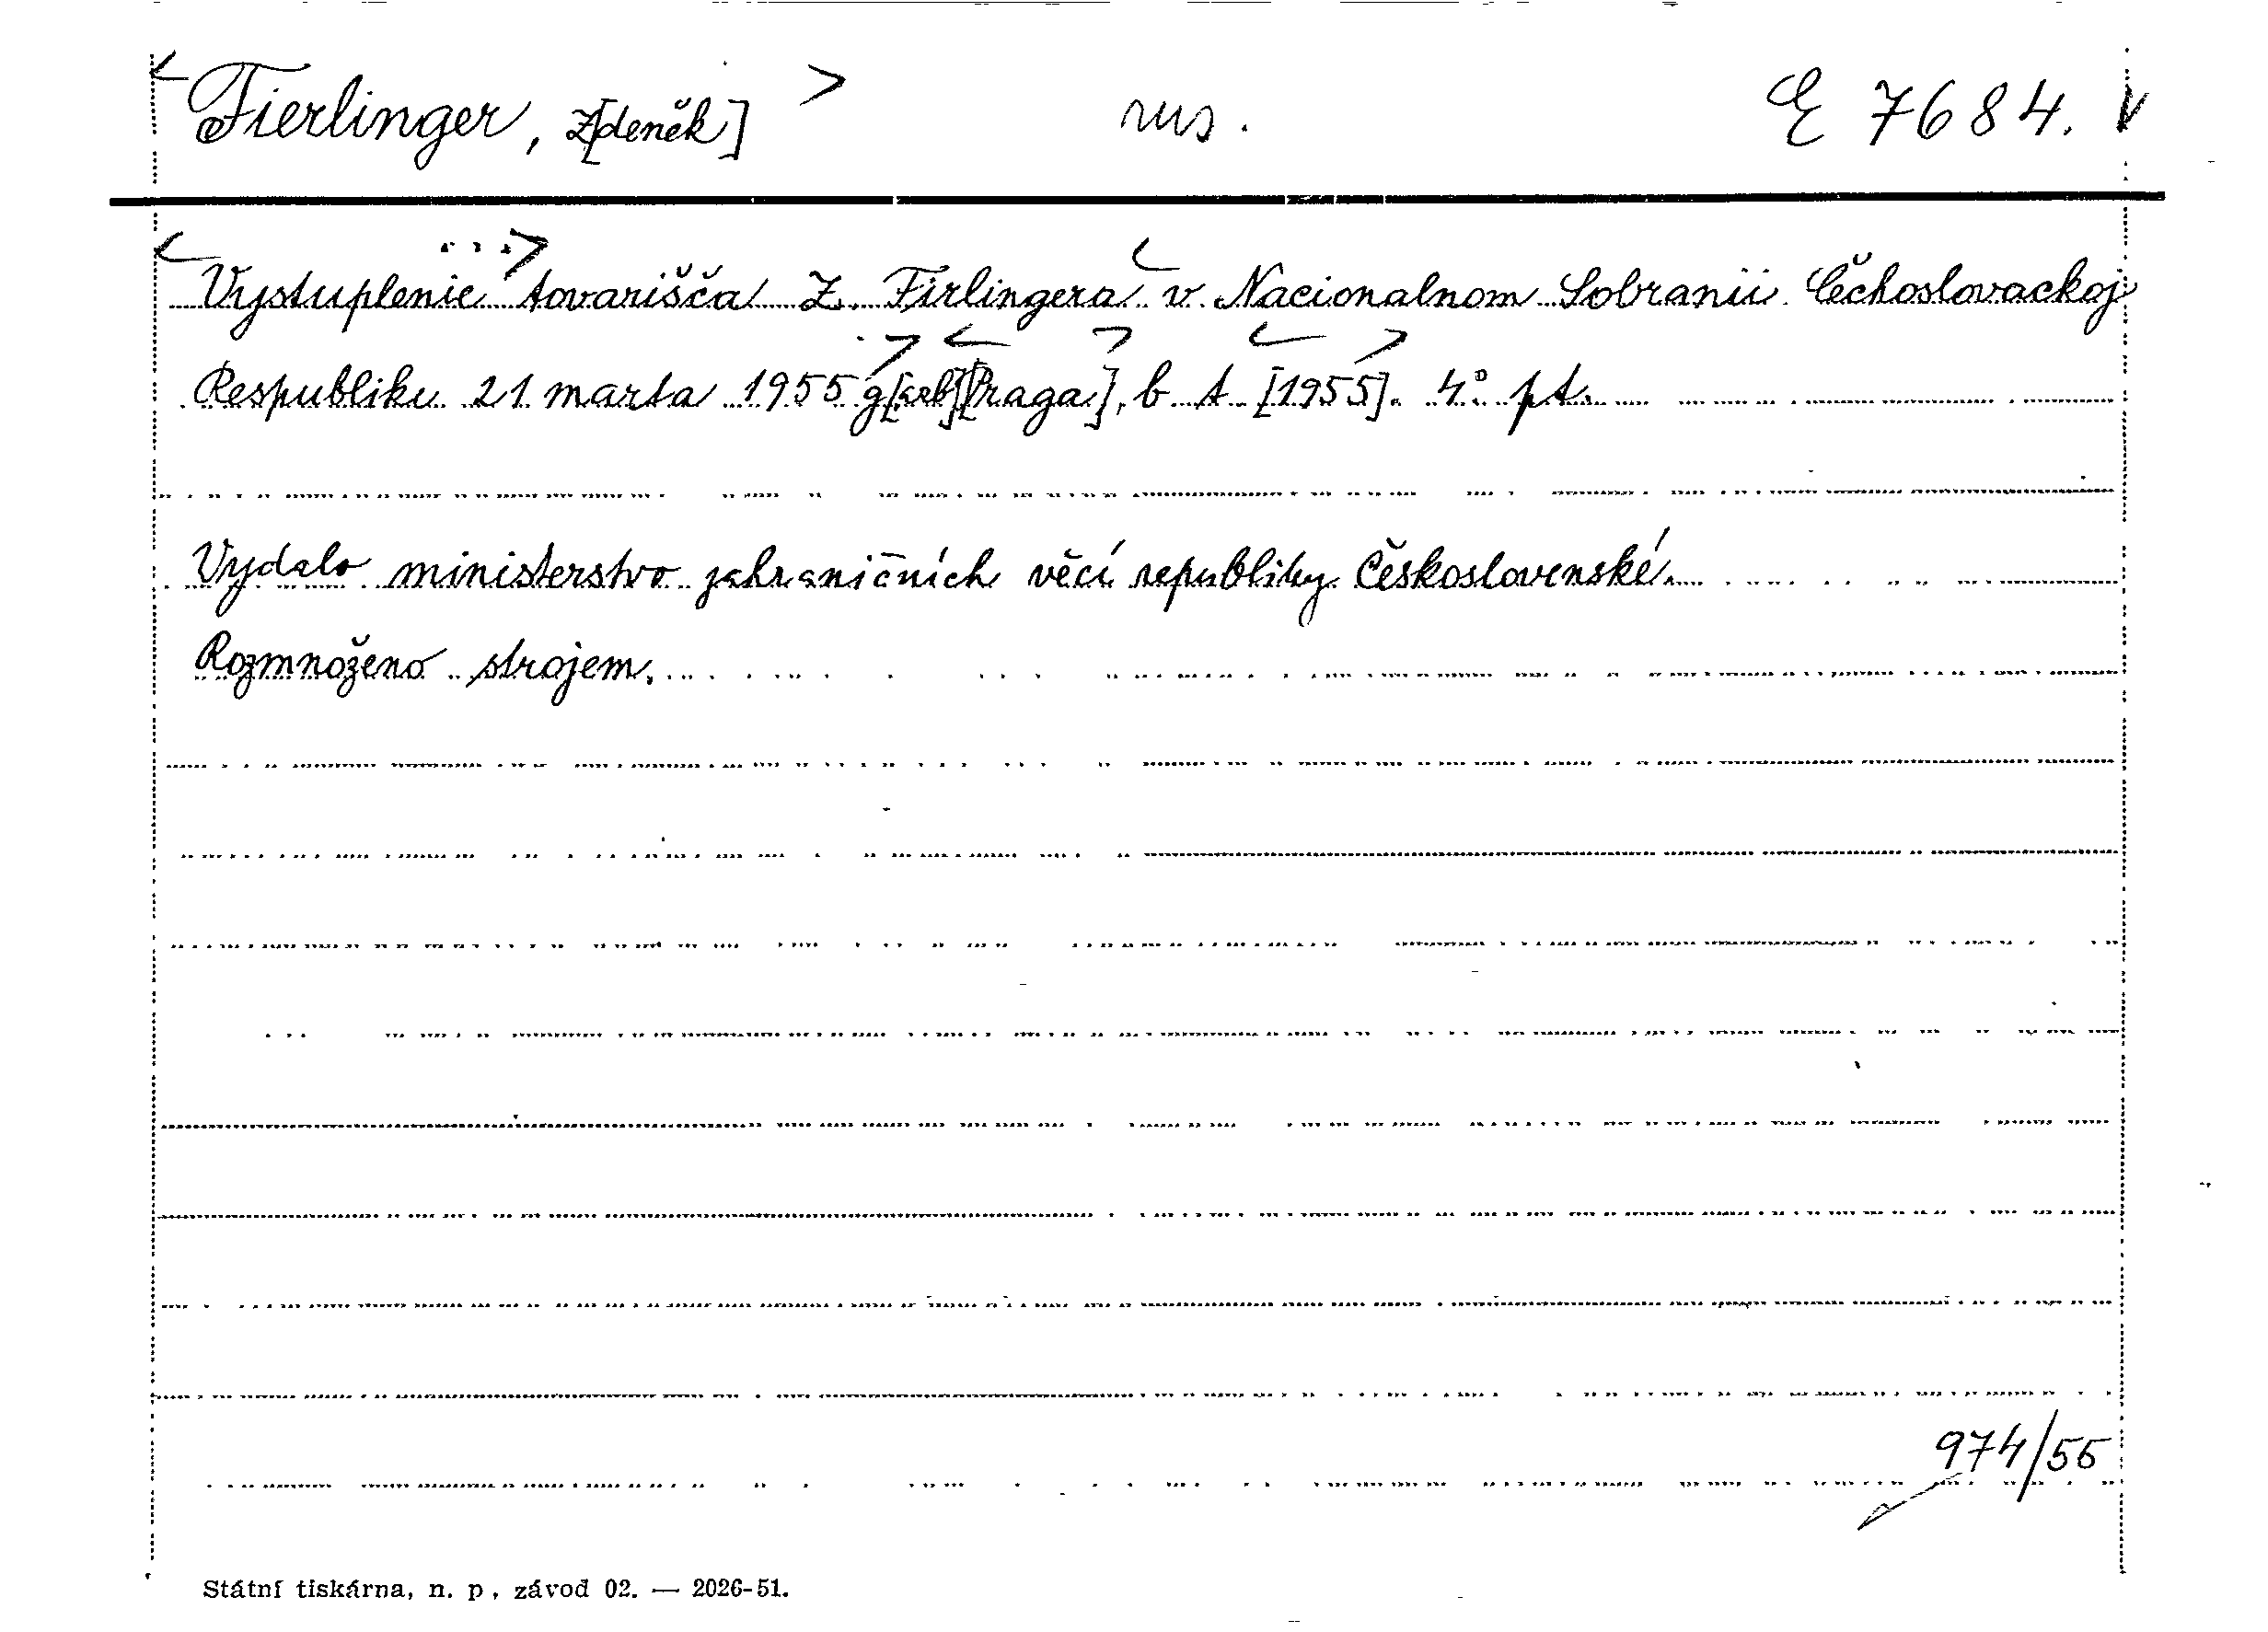 Fierlinger, Z[deněk] rus. E 7684.
Vystuplenie tovarišča Z. Firlingera v Nacionalnom Sobranii Čechoslovackoj
Respubliku 21 marta 1955 g[Praga], b. t. [1955]. 4° pt.
Vydalo ministerstvo zahraničních věcí republiky Československé.
Rozmnoženo strojem.
974/55
Státní tiskárna, n. p., závod 02. — 2026-51.